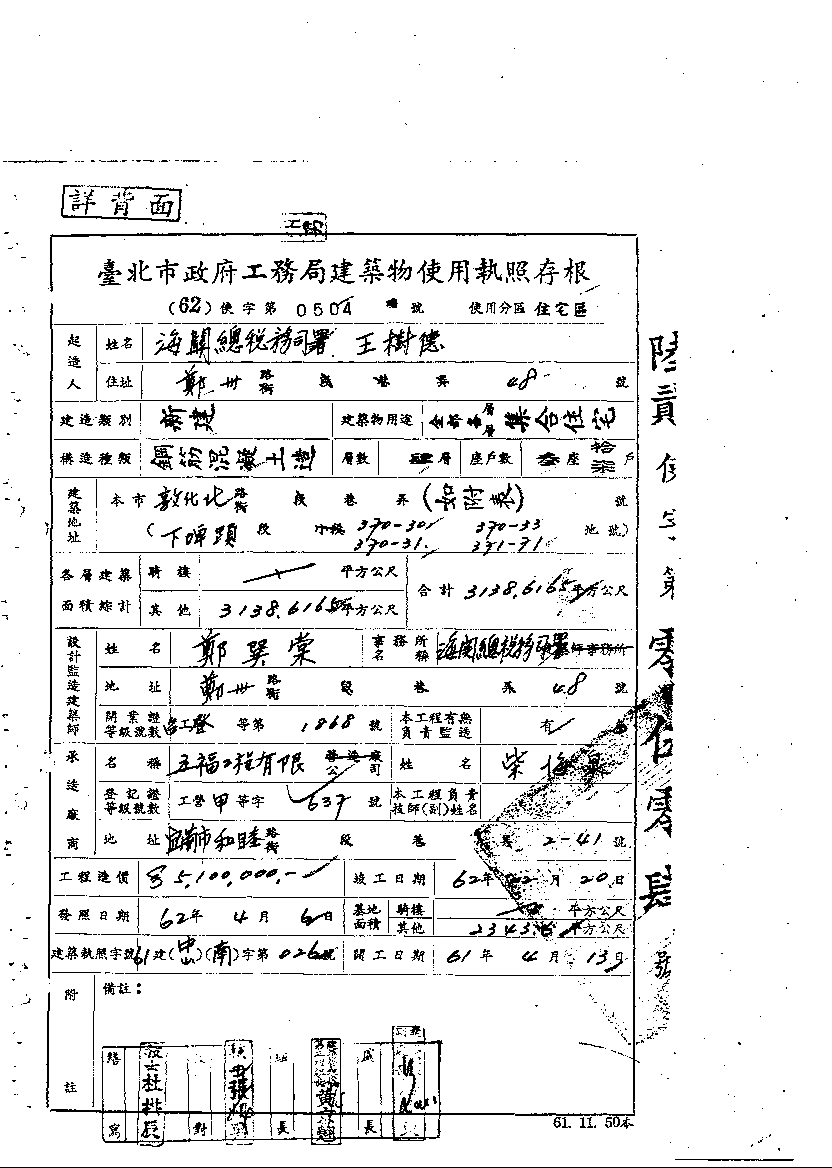 詳背面
臺北市政府工務局建築物使用執照存根
(62) 使字第 0504 號 使用分區 住宅區
起造人 姓名 海關總稅務司署 王樹德
住址 鄭州 路街 段 巷 弄 48 號
建造類別 新建 建築物用途 全部各層 集合住宅
構造種類 鋼筋混凝土造 層數 層 座戶數 座 拾柒 戶
建築地址 本市 敦化北 路街 段 巷 弄 (如附表) 號
(下埤頭 段 小段 370-30 370-33 地號)
370-31 371-71
各層建築面積總計 騎樓 平方公尺 合計 3138.6165 平方公尺
其他 3138.6165 平方公尺
設計監造建築師 姓名 鄭巽棠 事務所名稱 海關總稅務司署
地址 鄭州 路街 段 巷 弄 48 號
開業證等級號數 工登 等第 1868 號 本工程有無負責監造 有
承造廠商 名稱 五福工程有限 公司 姓名 柴
登記證等級號數 工營 甲 等字 637 號 本工程負責技師(副)姓名
地址 市和睦 路街 段 巷 弄 2-41 號
工程造價 5,100,000,- 竣工日期 62年 月 20日
發照日期 62年 4月 6日 基地面積 騎樓 平方公尺
其他 平方公尺
建築執照字號 61建(中山)(南)字第 026 號 開工日期 61年 4月 13日
附註 備註:
繕寫 技士杜 對 長 長
61. 11. 50本
陸貳使字第零伍零肆號